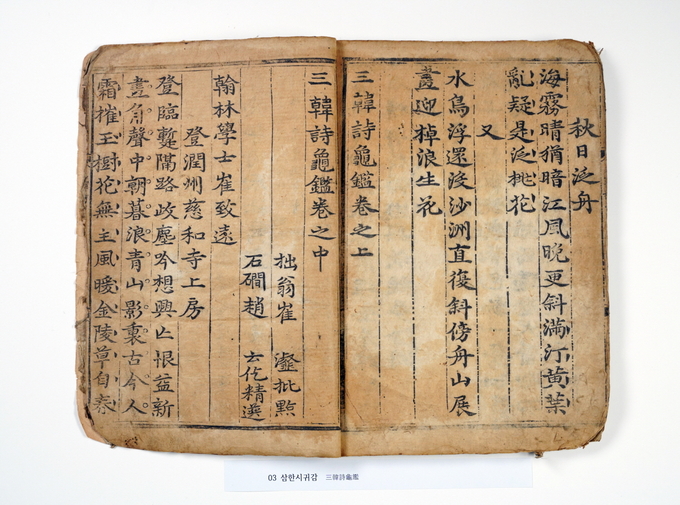 秋日泛舟
海霧晴猶暗江風晚更斜滿汀黃葉
亂疑是泛桃花
又
水鳥浮還沒沙洲直復斜傍舟山展
畫迎棹浪生花
三韓詩龜鑑卷之上
三韓詩龜鑑卷之中
拙翁崔 瀣批點
石磵趙 云仡精選
翰林學士崔致遠
登潤州慈和寺上房
登臨蹔隔路岐塵吟想興亡恨益新
畫角聲中朝暮浪靑山影裏古今人
霜摧玉樹花無主風暖金陵草自春
03 삼한시귀감 三韓詩龜鑑